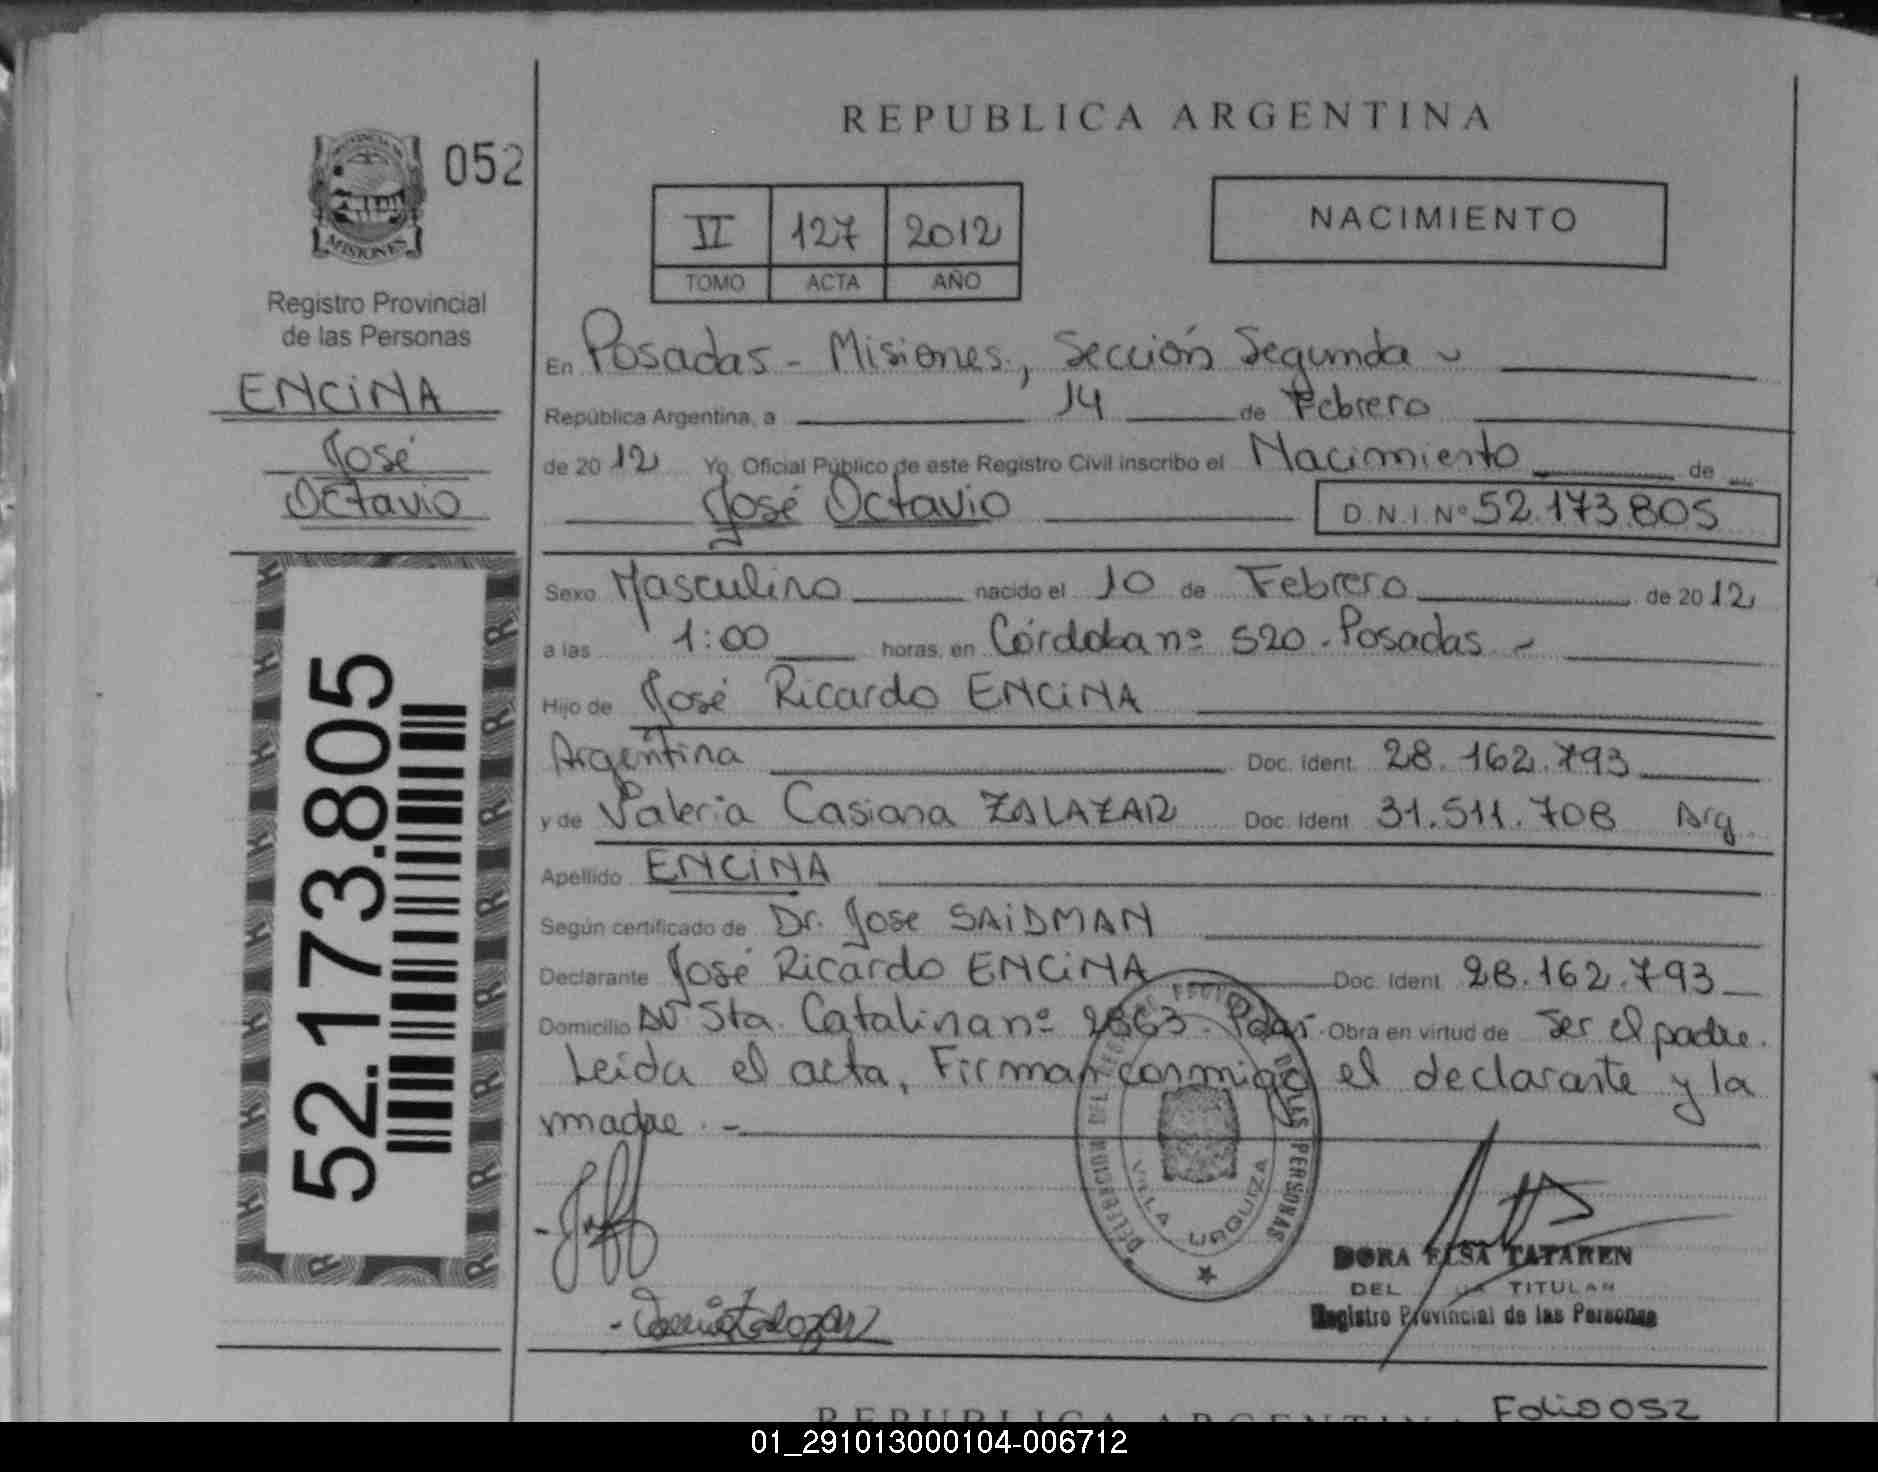 REPUBLICA ARGENTINA
052
MISIONES
Registro Provincial
de las Personas
ENCINA
José
Octavio
52.173.805
II 127 2012
TOMO ACTA AÑO
NACIMIENTO
En Posadas - Misiones, Sección Segunda
República Argentina, a 14 de Febrero
de 2012 Yo, Oficial Público de este Registro Civil inscribo el Nacimiento de
José Octavio D.N.I. Nº 52.173.805
Sexo Masculino nacido el 10 de Febrero de 2012
a las 1:00 horas, en Córdoba nº 520 - Posadas -
Hijo de José Ricardo ENCINA
Argentina Doc. Ident. 28.162.793
y de Valeria Casiana ZALAZAR Doc. Ident. 31.511.708 Arg.
Apellido ENCINA
Según certificado de Dr. Jose SAIDMAN
Declarante José Ricardo ENCINA Doc. Ident. 28.162.793
Domicilio Av Sta. Catalina nº Pdas. Obra en virtud de Ser el padre.
Leida el acta, Firman conmigo el declarante y la
madre. -
DELEGACION DEL REGISTRO DE LAS PERSONAS
VILLA URQUIZA
DORA ELSA TATAREN
DEL TITULAR
Registro Provincial de las Personas
REPUBLICA ARGENTINA
Folio 052
01_291013000104-006712